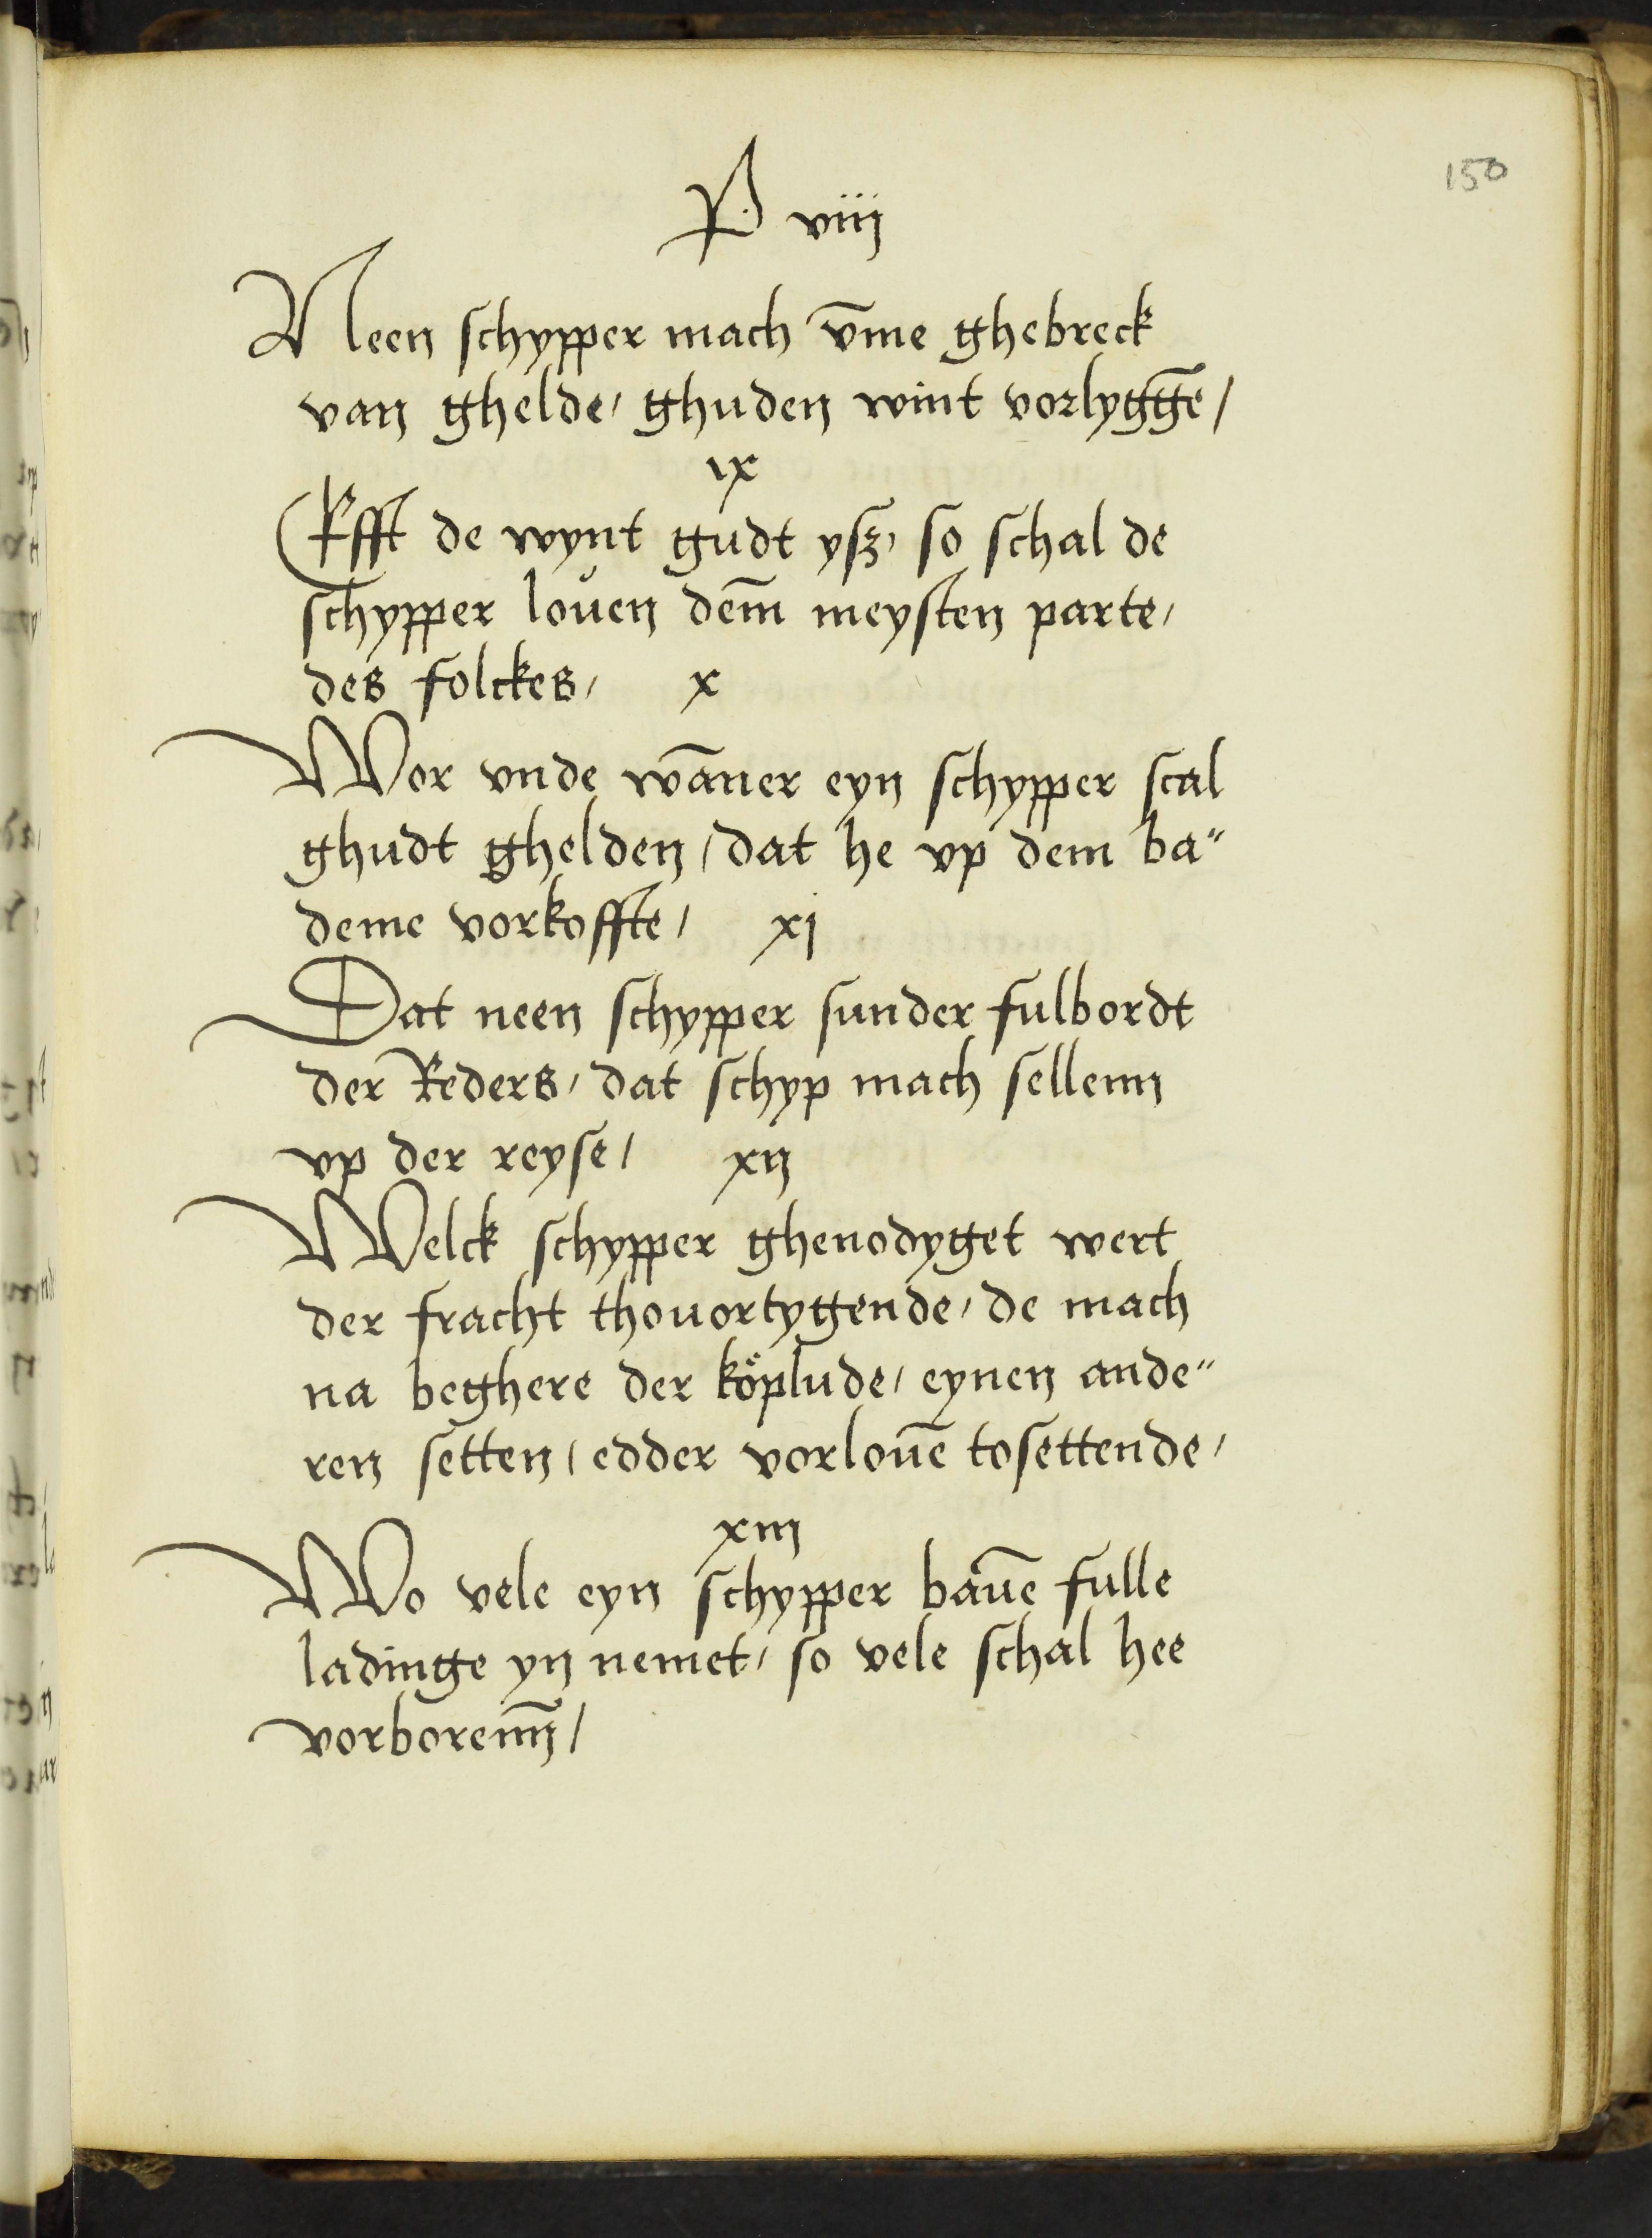 150
P viij
Neen schypper mach v̄me ghebreck
van ghelde/ ghuden wint vorlyggē/
ix
Efft de wynt gudt ysz/ so schal de
schypper louen dem̄ meysten parte/
des folckes/ x
Wor vnde wāner eyn schypper scal
ghudt ghelden/ dat he vp dem ba"
deme vorkoffte/ xj
Dat neen schypper sunder fulbordt
der Reders/ dat schyp mach sellenn
vp der reyse/ xij
Welck schypper ghenodyget wert
der fracht thouortygende/ de mach
na beghere der köplude/ eynen ande"
ren setten/ edder vorlouē tosettende/
xiij
Wo vele eyn schypper bauē fulle
ladinge yn nemet/ so vele schal hee
vorborenn̄/